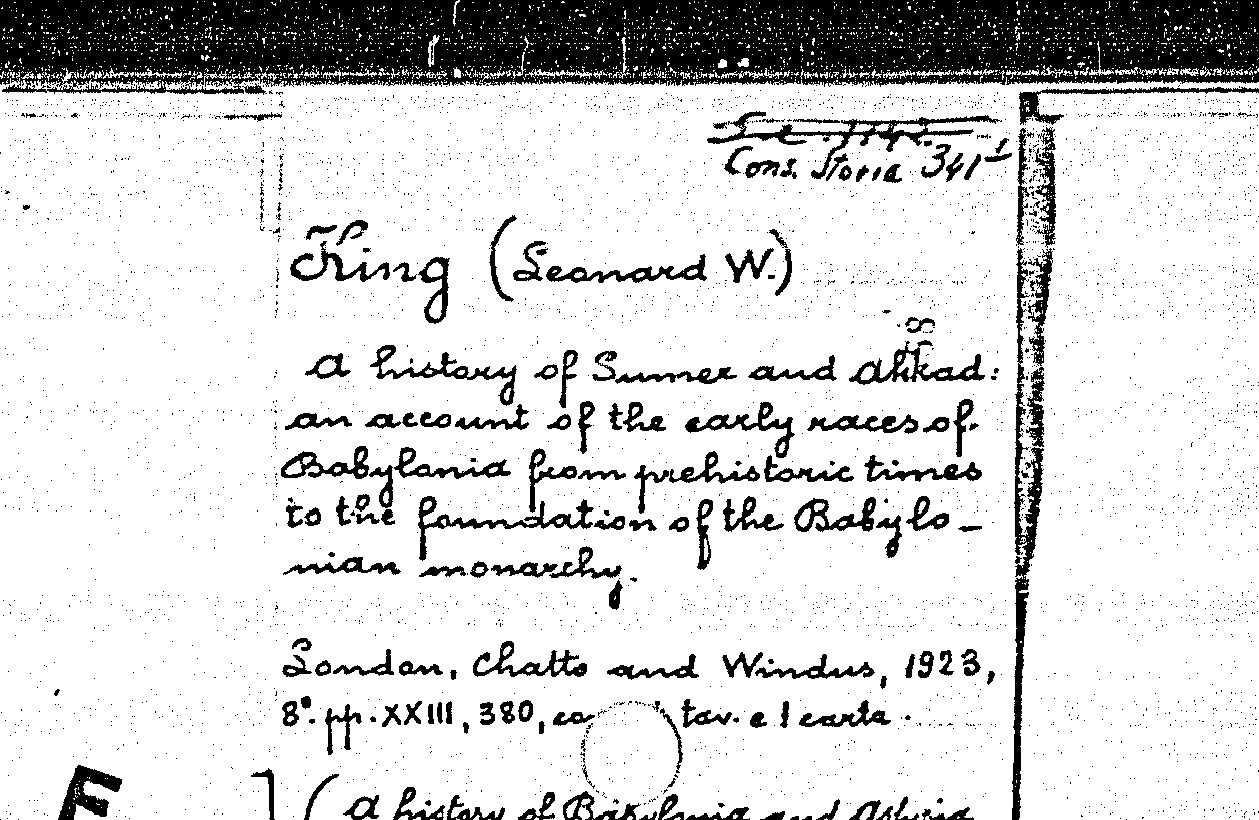 Cons. Storia 341¹
King (Leonard W.)
A history of Sumer and Akkad:
an account of the early races of
Babylonia from prehistoric times
to the foundation of the Babylo_
nian monarchy.
London, Chatto and Windus, 1923,
8°. pp. XXIII, 380, tav. e 1 carta.
(A history of Babylonia and Assyria